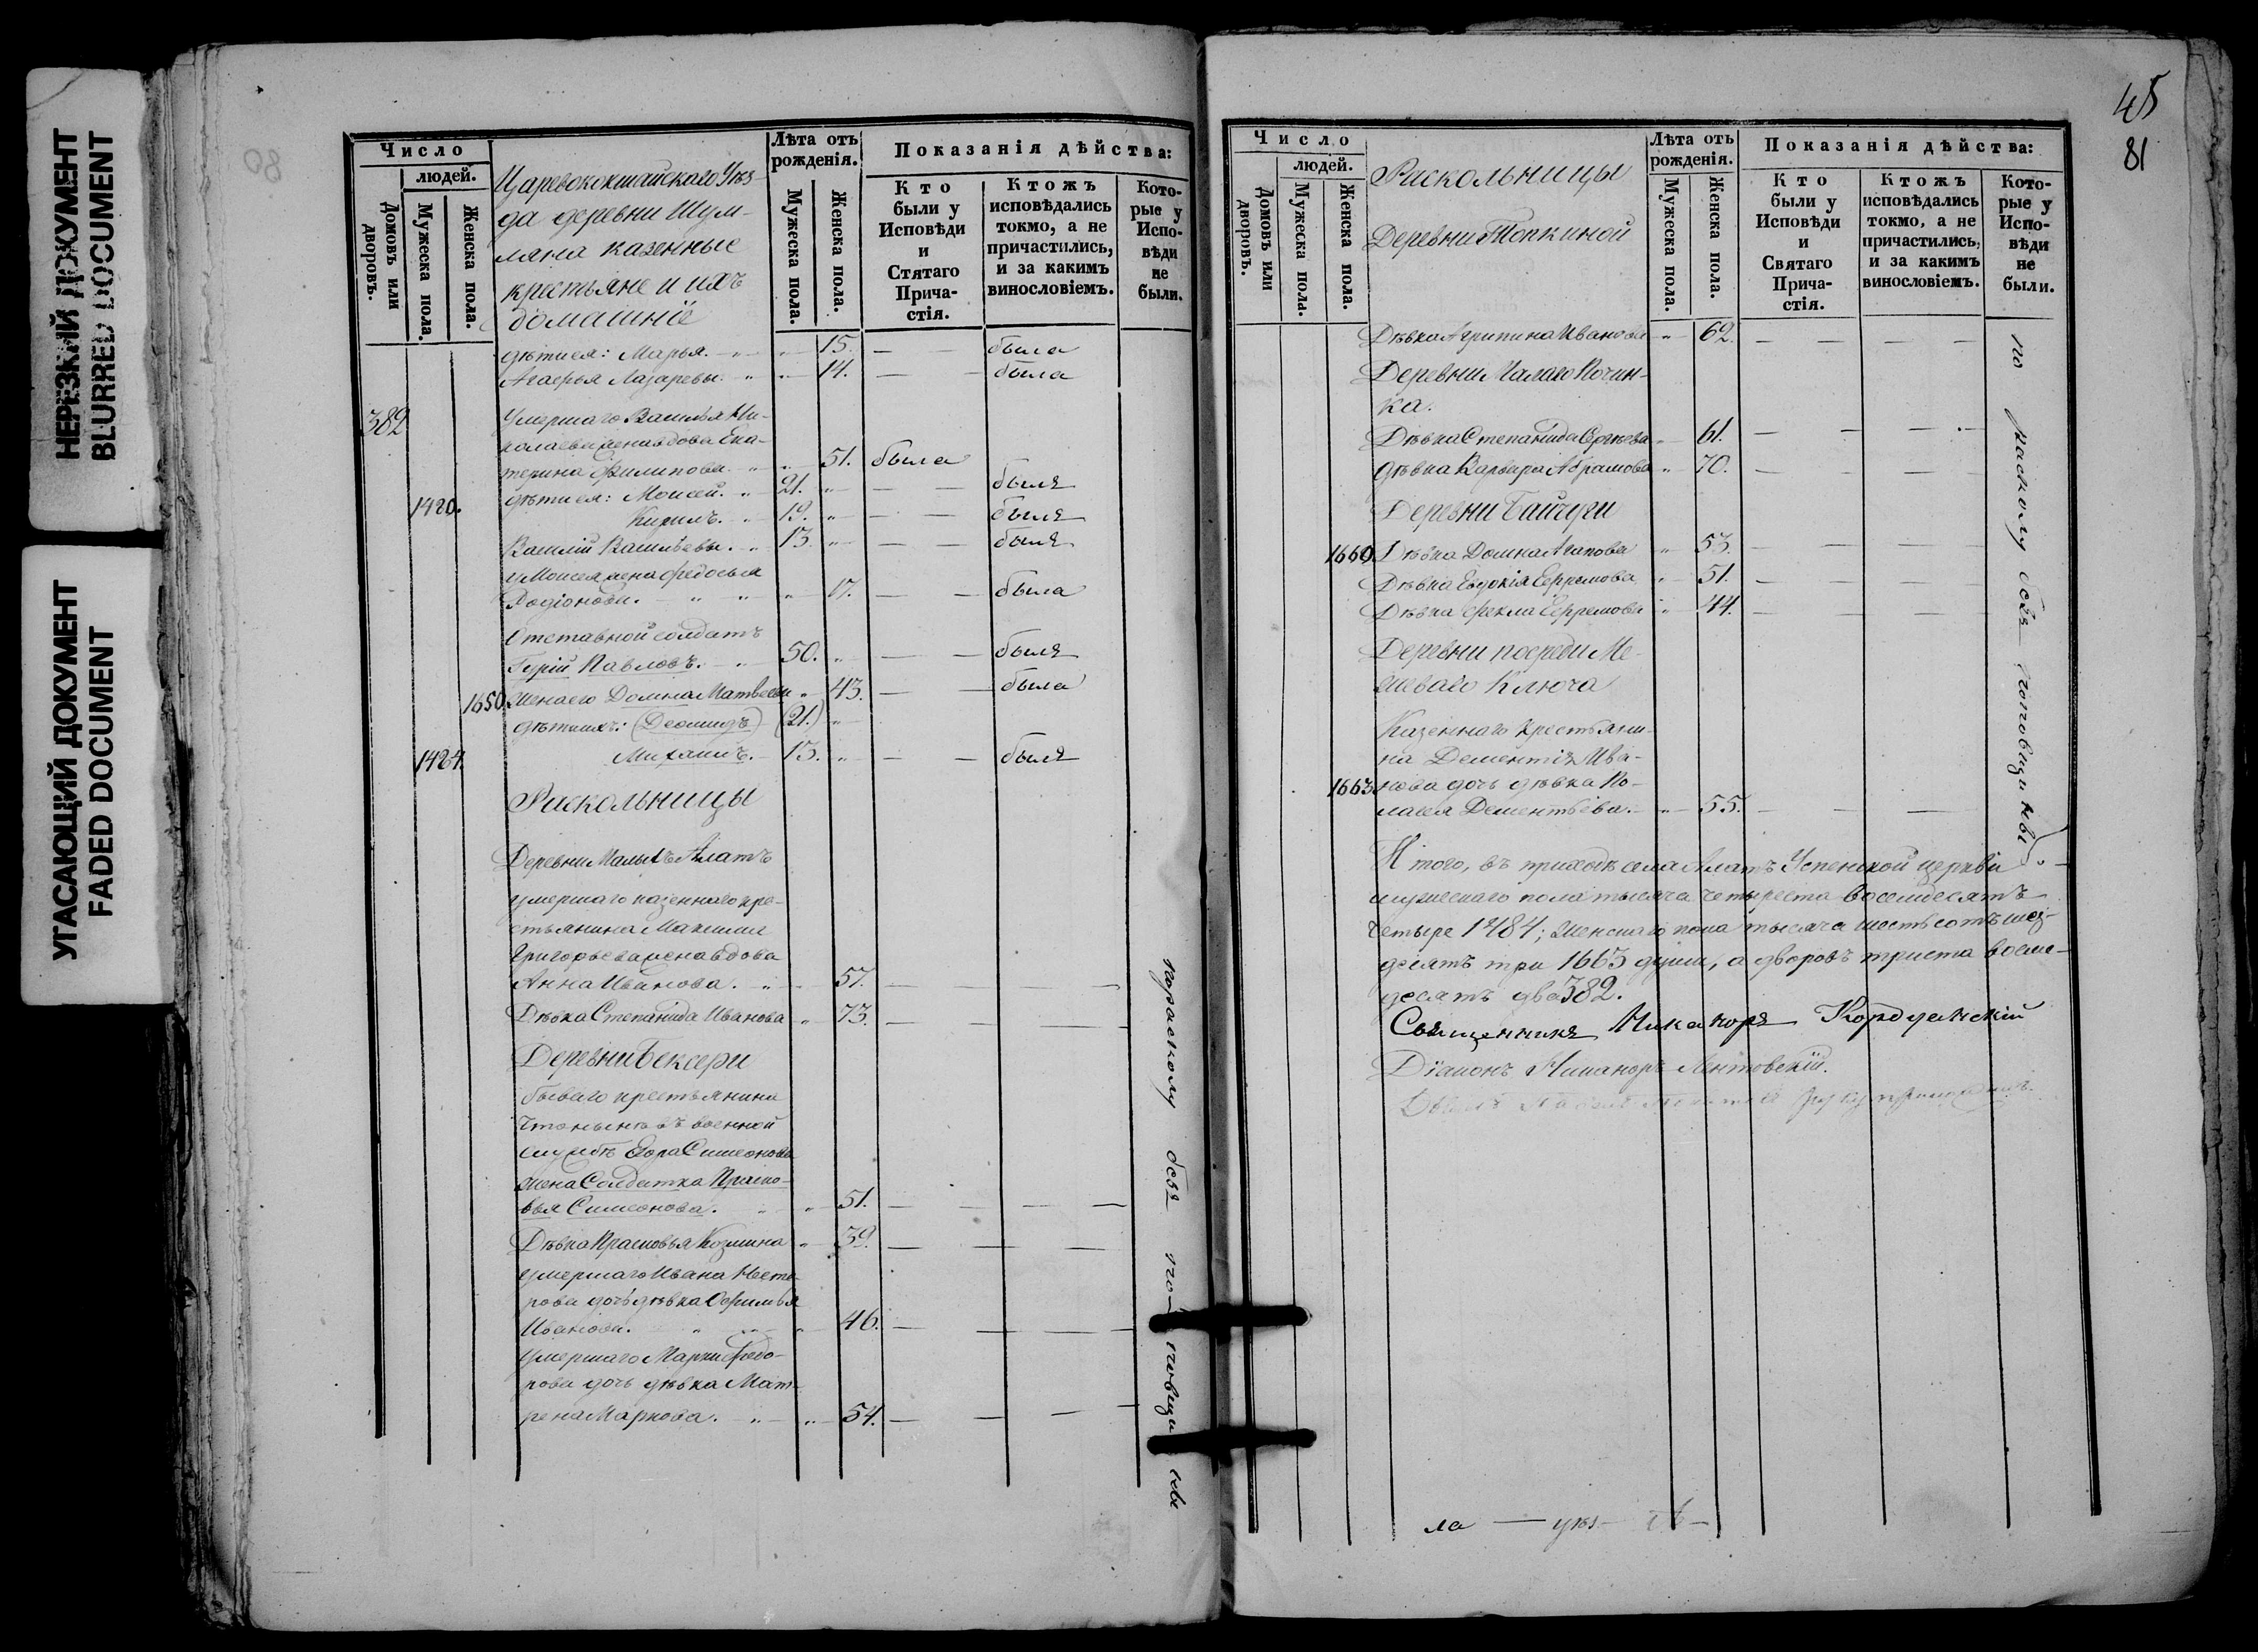 НЕРЕЗКИЙ ДОКУМЕНТ
BLURRED DOCUMENT
УГАСАЮЩИЙ ДОКУМЕНТ
FADED DOCUMENT
80
Число
людей.
Домовъ или дворовъ.
Мужеска пола.
Женска пола.
Царевококшайскаго Уѣз-
да деревни Шум-
ляна казенные
крестьяне и ихъ
домашніе
Лѣта отъ рожденія.
Мужеска пола.
Женска пола.
Показанія дѣйства:
Кто были у Исповѣди и Стятаго Прича-стія.
Ктожъ исповѣдались токмо, а не причастились, и за какимъ винословіемъ.
Кото-рые у Испо-вѣди не были.
дѣти ея: Марья. 15. — была
Агафья Лазаревы. 14. — — была
382 Умершаго Василья Ни-
колаева жена вдова Ека-
терина Филипова. 51. была
1420. дѣти ея: Моисей. 21. — — былъ
Кирилъ. 19. — — былъ
Василій Васильевы. 13. — — былъ
у Моисея жена Федосья
Родіонова. 17. — — была
Отставной солдатъ
Гурій Павловъ. 50. — — былъ
1650. Жена его Домна Матвеева 43. — — была
дѣти ихъ: (Деомидъ) (21.)
1424. Михаилъ. 13. — — былъ
Раскольницы
Деревни Малыхъ Алатъ
умершаго казеннаго кре-
стьянина Максима
Григорьева жена вдова
Анна Иванова. 57. — — —
Дѣвка Степанида Иванова 73. — — —
Деревни Бексери
бывшаго крестьянина
что нынѣ въ военной
службѣ Егора Симеонова
жена Солдатка Праско-
вья Симеонова. 51. — — — —
Дѣвка Прасковья Козмина 39. — — —
умершаго Ивана Несте-
рова дочь дѣвка Офимья
Иванова. 46. — — — —
Умершаго Марки Федо-
рова дочь дѣвка Мат-
рена Маркова. 54. — — — —
по расколу безпоповщины
45
81
Число
людей.
Домовъ или дворовъ.
Мужеска пола.
Женска пола.
Раскольницы
Деревни Топкиной
Лѣта отъ рожденія.
Мужеска пола.
Женска пола.
Показанія дѣйства:
Кто были у Исповѣди и Святаго Прича-стія.
Ктожъ исповѣдались токмо, а не причастились, и за какимъ винословіемъ.
Кото-рые у Испо-вѣди не были.
Дѣвка Агрипина Иванова 62. — — — — —
Деревни Малаго Почин-
ка.
Дѣвка Степанида Сергѣева 61. — — —
дѣвка Варвара Абрамова 70. — — —
Деревни Байчуги
1660. Дѣвка Домна Агапова 53. — — —
Дѣвка Евдокія Ефремова 51. — —
Дѣвка Фекла Ефремова 44. — — —
Деревни посреди Ме-
шеваго Ключа
Казеннаго крестьяни-
на Дементія Ива-
1663. нова дочь дѣвка
Дементьева. 55. — —
по расколу безъ поповщины
И того, въ приходѣ села Алатъ Успенской церкви
мужескаго пола тысяча четыреста восемдесятъ
четыре 1484; женскаго пола тысяча шестьсотъ шез-
десятъ три 1663 души, а дворовъ триста восем-
десятъ два 382.
Священникъ Никаноръ
Діаконъ Никаноръ Лентовскій.
ла — уѣз —